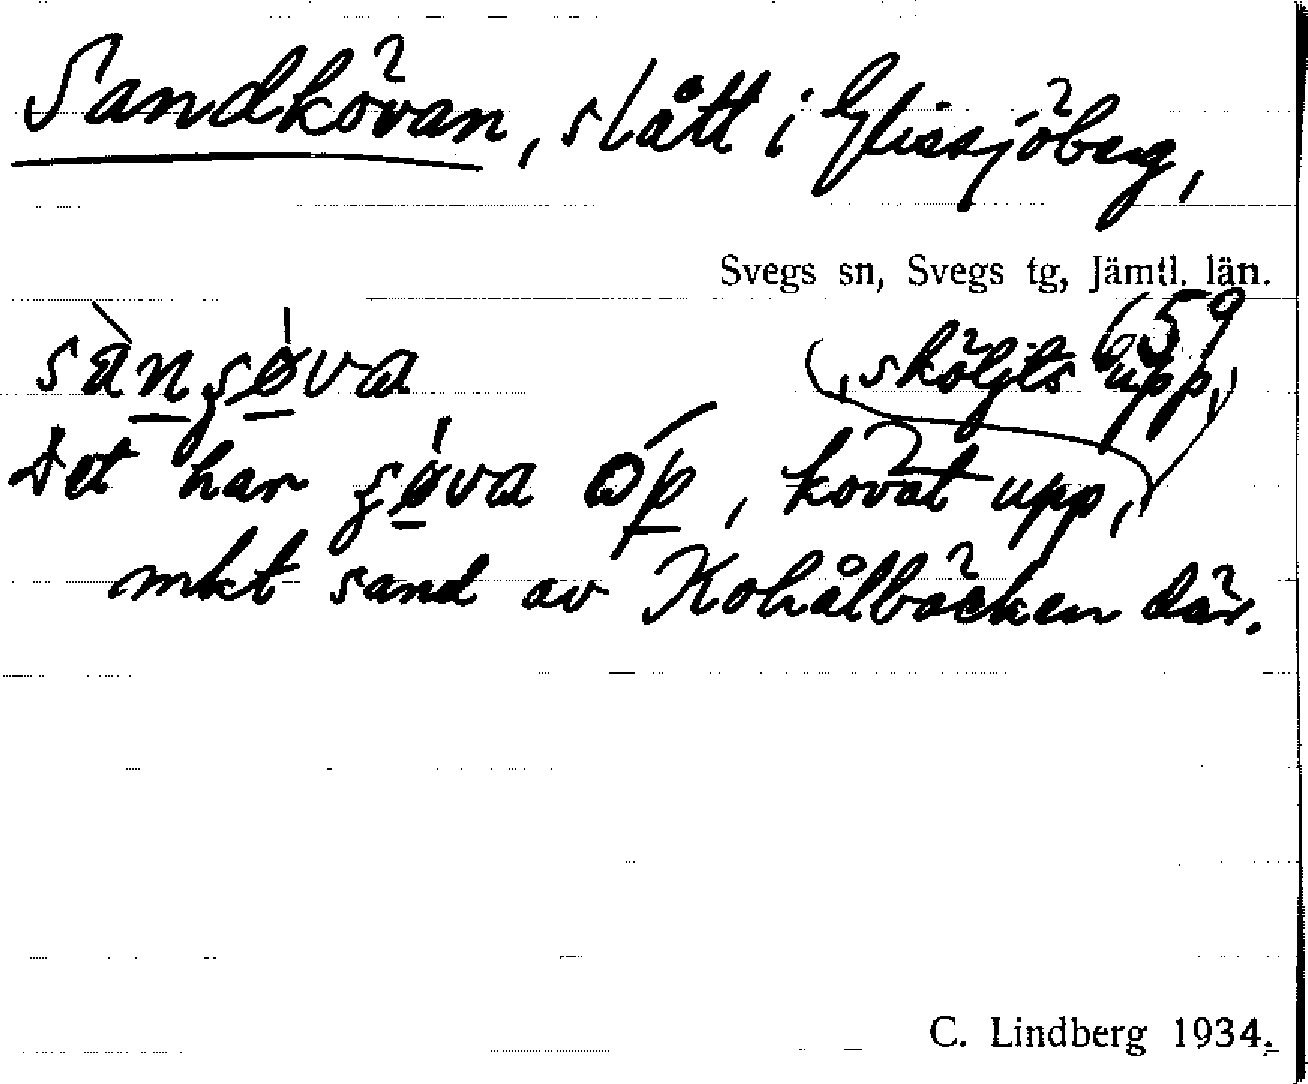 Sandkövan, slått i Glissjöberg,
Svegs sn, Svegs tg, Jämtl. län.
659
sàngøva (, sköljts upp,)
Det har gøva op, kovat upp,
mkt sand av Kohålbäcken där.
C. Lindberg 1934.